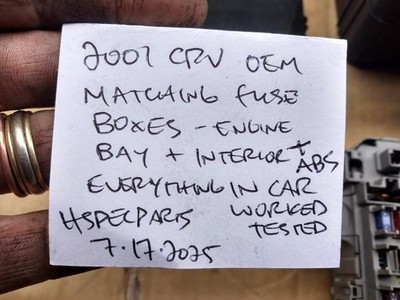 2007 CRV OEM
MATCHING FUSE
BOXES - ENGINE
BAY + INTERIOR + ABS
EVERYTHING IN CAR
HSPECPARTS WORKED
7.17.2025 TESTED